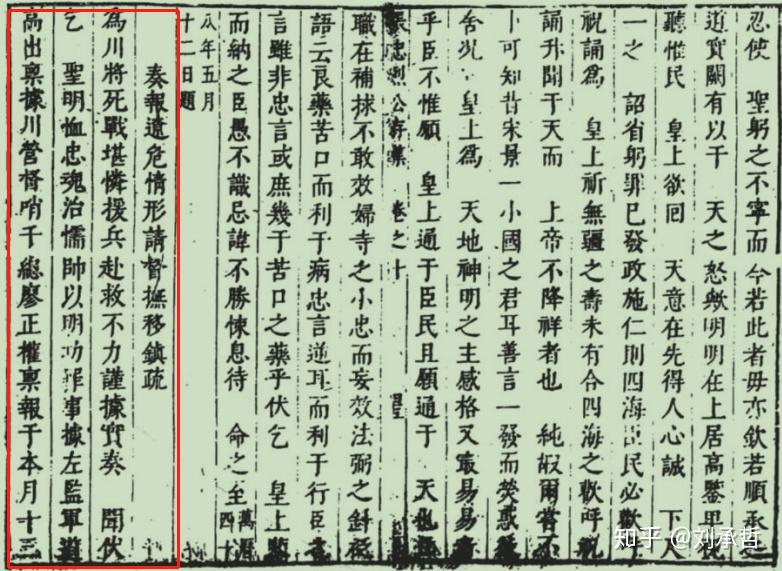 忍使　聖躬之不寧而今若此者毋亦欽若順承
道實關有以干　天之怒歟明明在上居高鑒卑
聽惟民　皇上欲囘　天意在先得人心誠　下
一之　詔省躬罪已發政施仁則四海臣民必歡
祝誦爲　皇上祈無疆之壽未有合四海之歡呼祝
誦升聞于天而　上帝不降祥者也　純嘏爾嘗不
卜可知昔宋景一小國之君耳善言一發而熒惑
舍况　皇上爲　天地神明之主感格又最易易
乎臣不惟願　皇上通于臣民且願通于　天也
張忠烈公存集　卷之十
職在補捄不敢效婦寺之小忠而妄效法弼之針砭
語云良藥苦口而利于病忠言逆耳而利于行臣
言雖非忠言或庶幾于苦口之藥乎伏乞　皇上鑒
而納之臣愚不識忌諱不勝悚息待　命之至萬曆四十
八年五月
十二日題
奏報遼危情形請督撫移鎮疏
爲川將死戰堪憐援兵赴救不力謹據實奏　聞伏
乞　聖明恤忠魂治懦帥以明功罪事據左監軍道
高出稟據川營督哨千總廖正權稟報于本月十三
知乎 @刘承哲